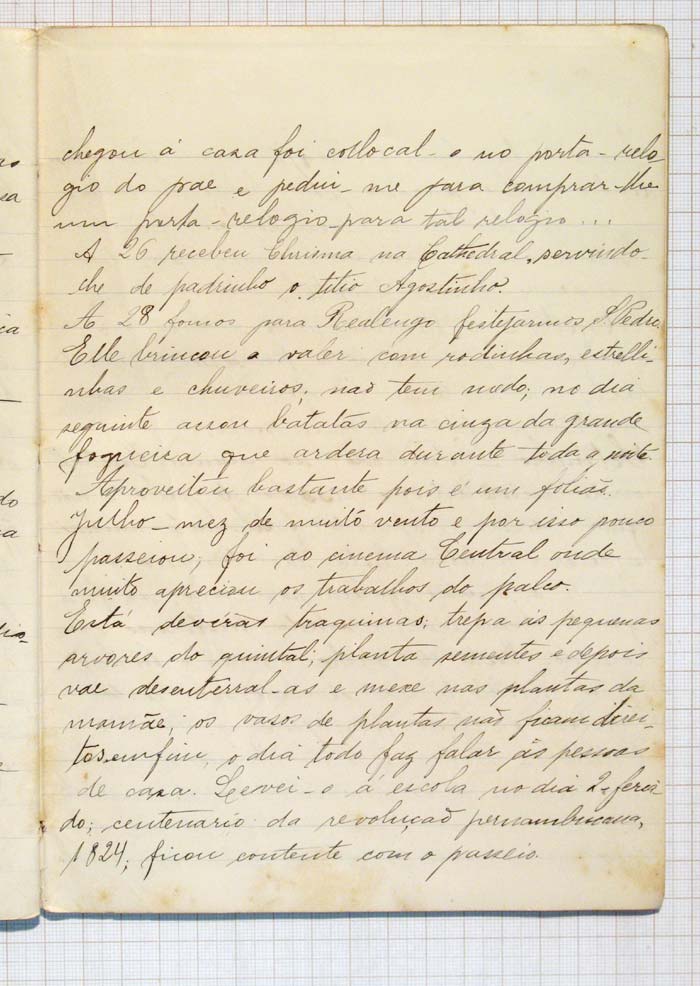 chegou á casa foi collocal-o no porta-relo-
gio do pae e pediu-me para comprar-lhe
um porta-relogio para tal relogio...
A 26 recebeu Chrisma na Cathedral, servindo-
lhe de padrinho o titio Agostinho.
A 28 fomos para Realengo festejarmos S. Pedro.
Elle brincou a valer com rodinhas, estrelli-
nhas e chuveiros; não tem medo; no dia
seguinte assou batatas na cinza da grande
fogueira que ardera durante toda a noite.
Aproveitou bastante pois é um folião.
Julho - mez de muito vento e por isso pouco
passeiou; foi ao cinema Central onde
muito apreciou os trabalhos do palco.
Está devéras traquinas; trepa ás pequenas
arvores do quintal; planta sementes e depois
vae desenterral-as e mexe nas plantas da
mamãe; os vasos de plantas não ficam direi-
tos emfim, o dia todo faz falar ás pessoas
de casa. Levei-o á escola no dia 2- feria-
do; centenario da revolução pernambucana,
1824; ficou contente com o passeio.